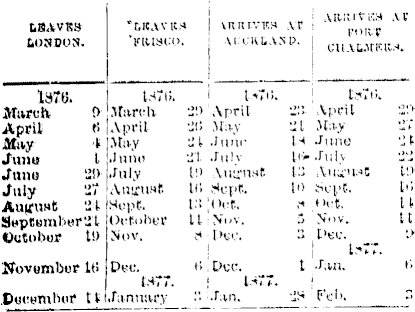 LEAVES LONDON. LEAVES FRISCO. ARRIVES AT AUCKLAND. ARRIVES AT PORT CHALMERS.
1876. 1876. 1876. 1876.
March 9 March 29 April 23 April 29
April 6 April 26 May 21 May 27
May 4 May 24 June 18 June 24
June 1 June 21 July 16 July 22
June 29 July 19 August 13 August 19
July 27 August 16 Sept. 10 Sept. 16
August 24 Sept. 13 Oct. 8 Oct. 14
September 21 October 11 Nov. 5 Nov. 11
October 19 Nov. 8 Dec. 3 Dec. 9
1877.
November 16 Dec. 6 Dec. Jan. 6
1877. 1877.
December 14 January 3 Jan. 28 Feb. 3